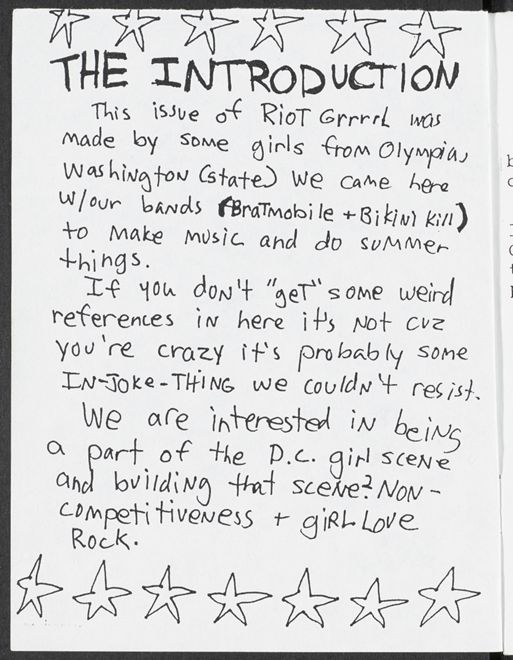 THE INTRODUCTION
This issue of RioT GrrrL was
made by some girls from Olympia,
Washington (state) We came here
w/our bands (BraTmobile + Bikini Kill)
to make music and do summer
things.
If you don't "geT" some weird
references in here it's Not cuz
you're crazy it's probably some
IN-JOKE-THING we couldn't resist.
We are interested in being
a part of the D.C. girl scene
and building that scene? NON-
competitiveness + giRL LOVE
Rock.